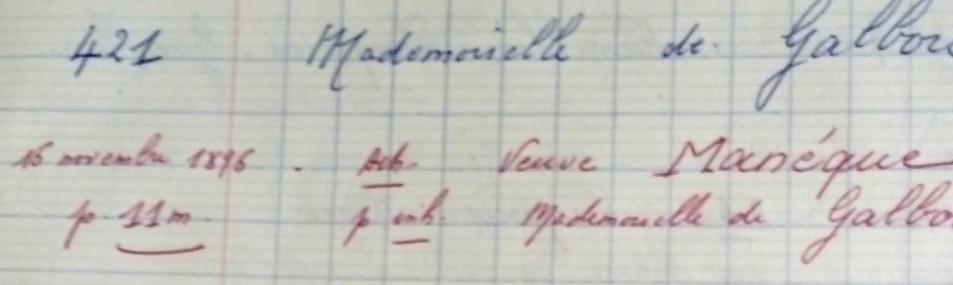 421 Mademoiselle de Galbou
16 novembre 1896. Ach. Veuve Manéque
p. 11m. p Mademoiselle de Galbo